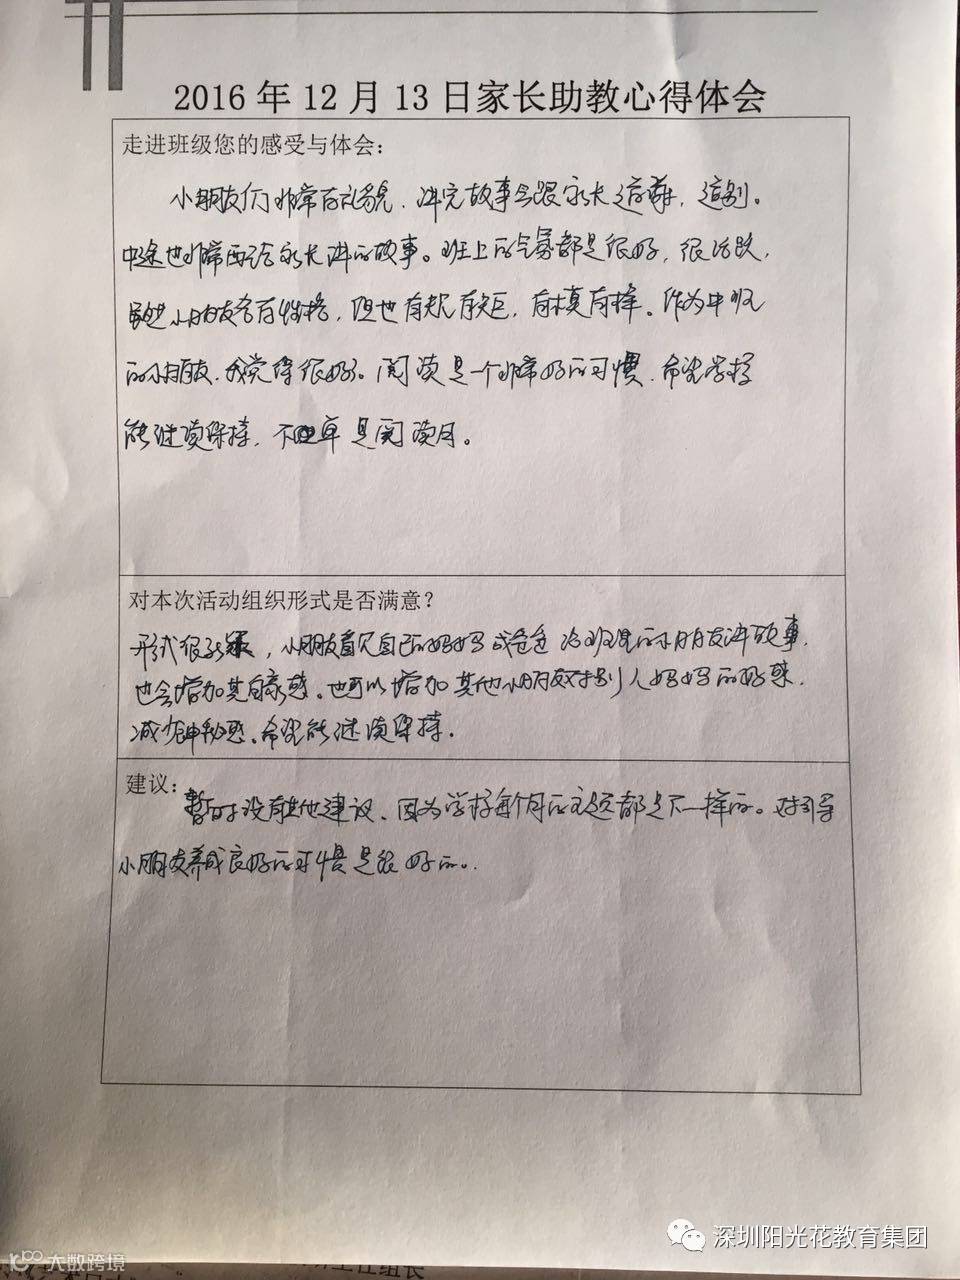 2016 年 12 月 13 日家长助教心得体会
走进班级您的感受与体会：
小朋友们非常有礼貌，讲完故事会跟家长，道别。
中途也非常配合家长讲的故事。班上的气氛都是很好，很活跃，
虽然小朋友各有性格，但也有规有矩，有模有样。作为中班
的小朋友，我觉得很好。阅读是一个非常好的习惯，希望学校
能继续保持，不单是阅读月。
对本次活动组织形式是否满意？
形式很，小朋友看见自己的妈妈或爸爸给班里的小朋友讲故事，
也会增加其自豪感。也可以增加其他小朋友对别人妈妈的好感，
减少神秘感。希望能继续保持。
建议：
暂时没有其他建议，因为学校每个月的主题都是不一样的。对引导
小朋友养成良好的习惯是很好的。
深圳阳光花教育集团
大数跨境